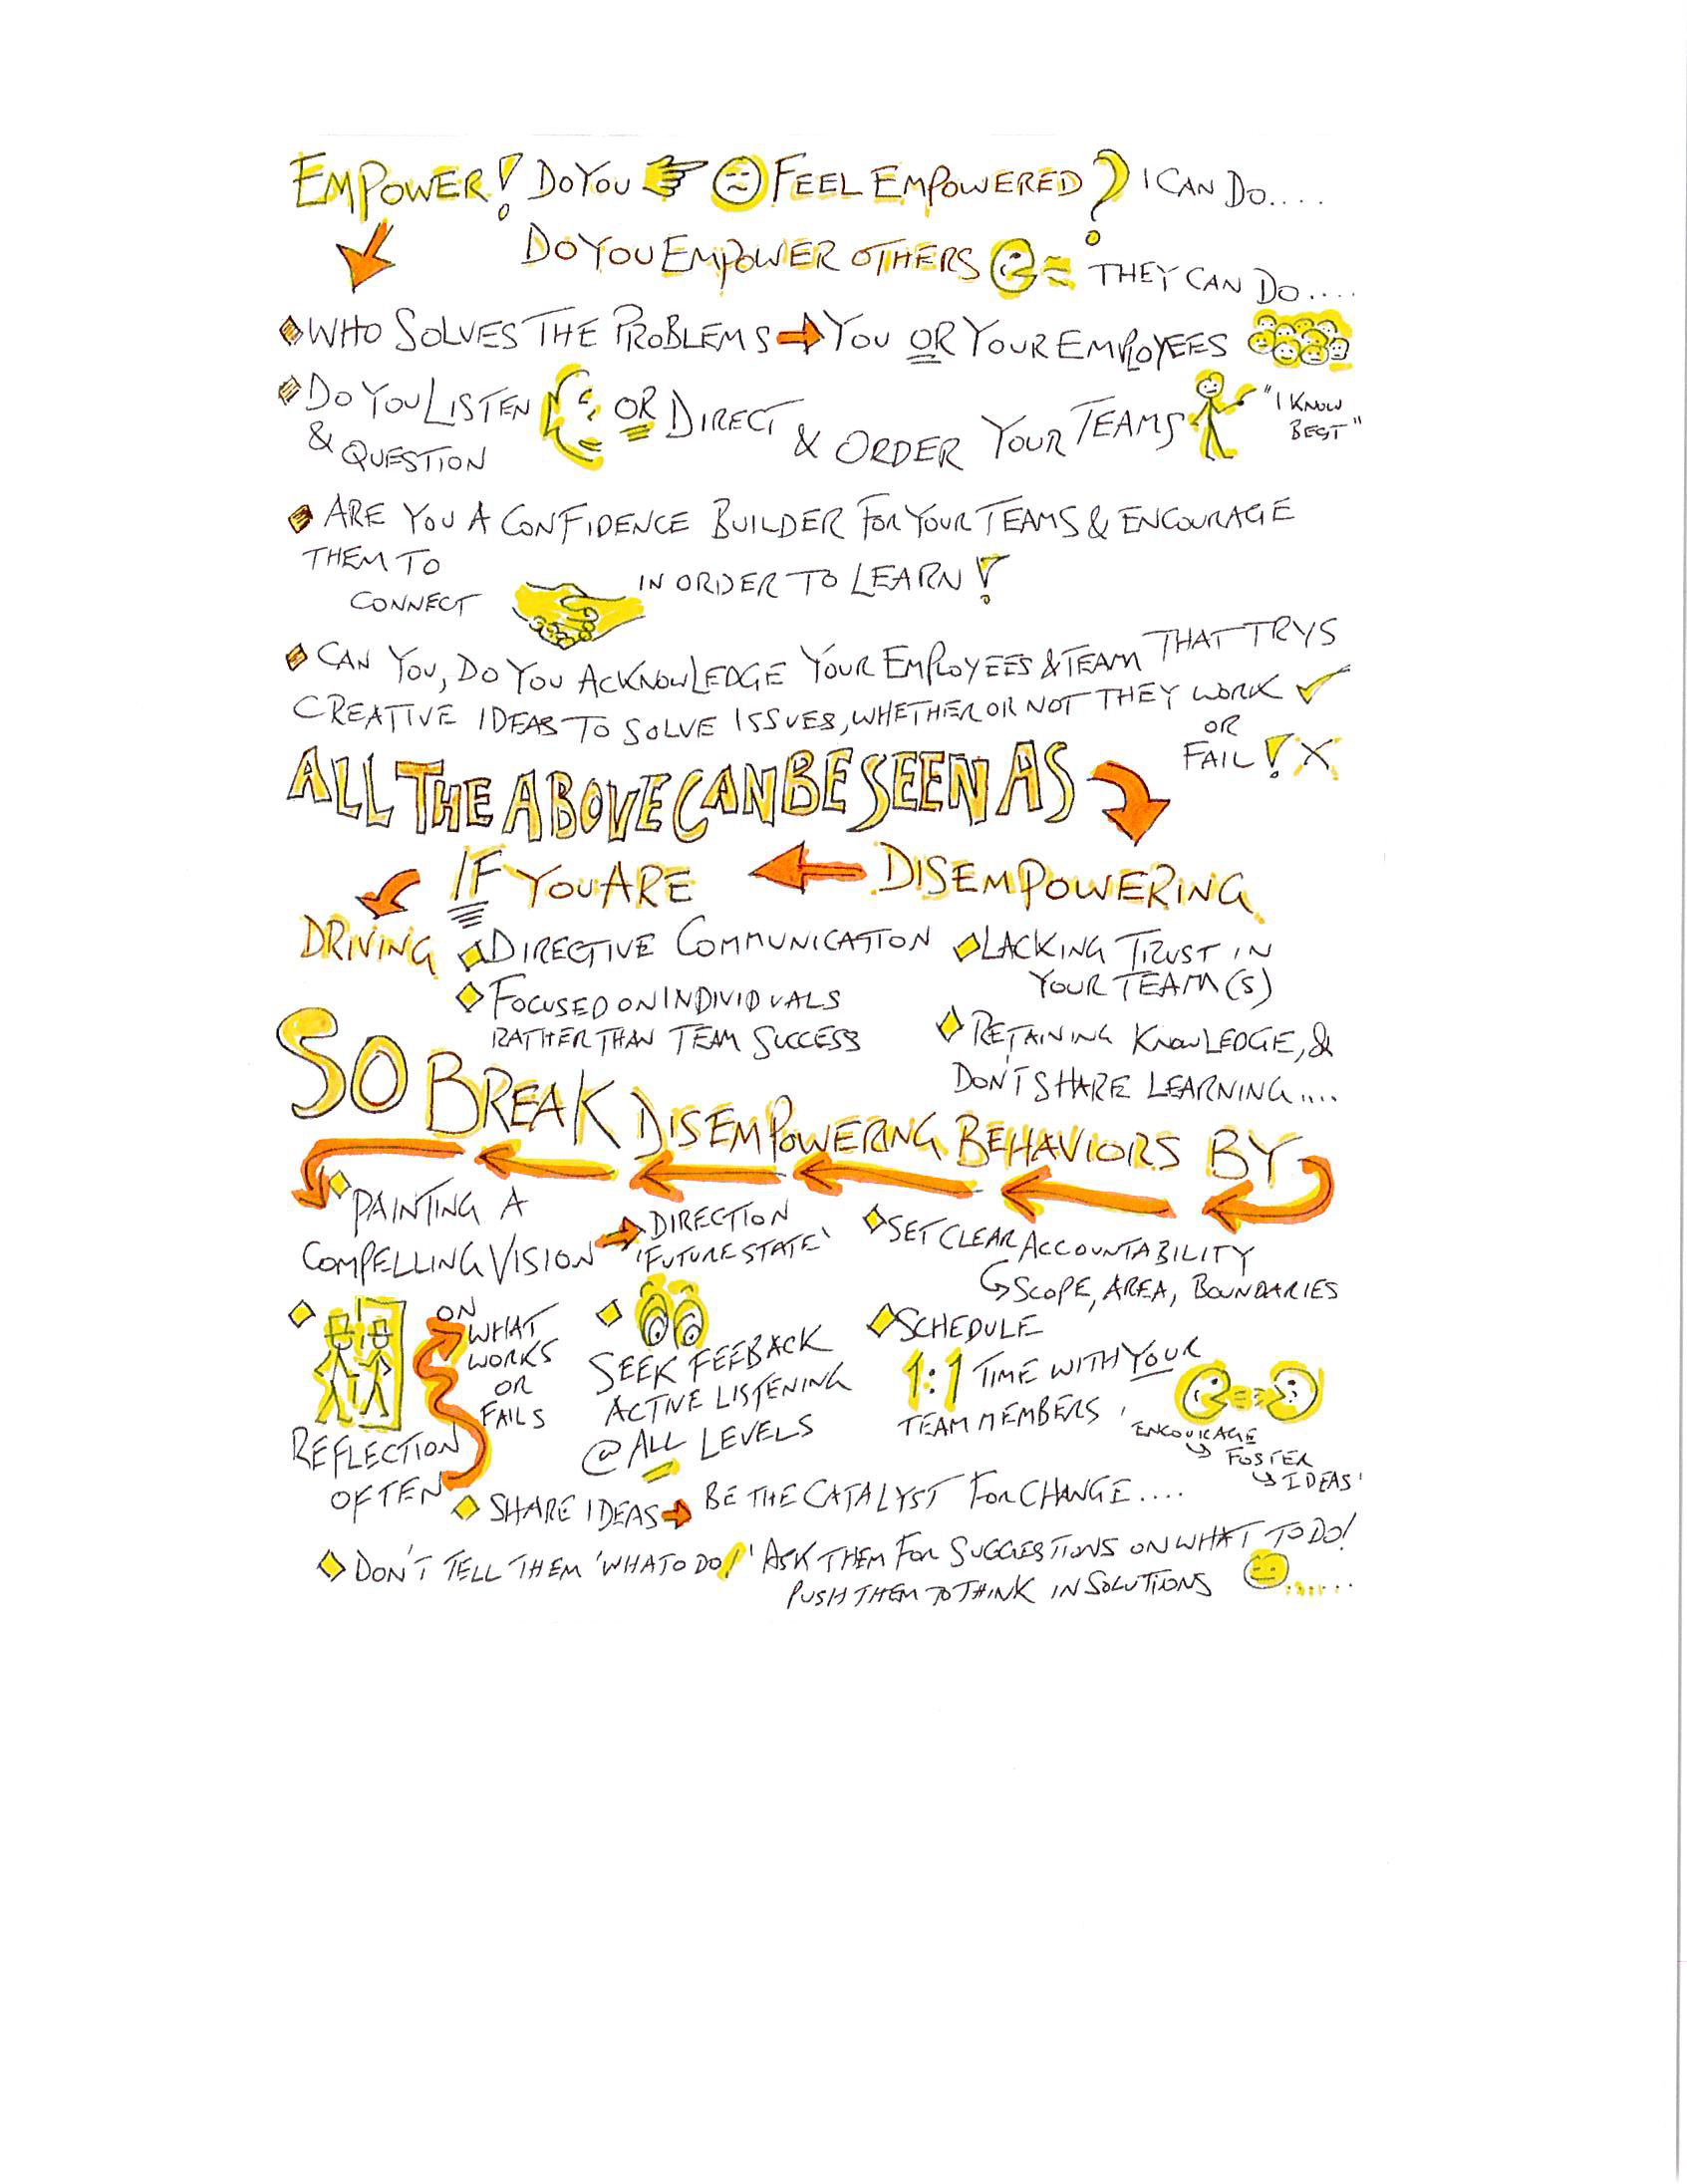 EMPOWER! DO YOU FEEL EMPOWERED? I CAN DO....
DO YOU EMPOWER OTHERS THEY CAN DO....
WHO SOLVES THE PROBLEMS → YOU OR YOUR EMPLOYEES
DO YOU LISTEN OR DIRECT & ORDER YOUR TEAMS "I KNOW
& QUESTION BEST"
ARE YOU A CONFIDENCE BUILDER FOR YOUR TEAMS & ENCOURAGE
THEM TO
CONNECT IN ORDER TO LEARN!
CAN YOU, DO YOU ACKNOWLEDGE YOUR EMPLOYEES & TEAM THAT TRYS
CREATIVE IDEAS TO SOLVE ISSUES, WHETHER OR NOT THEY WORK ✓
OR
FAIL! X
ALL THE ABOVE CAN BE SEEN AS
DISEMPOWERING
IF YOU ARE
DRIVING
DIRECTIVE COMMUNICATION
FOCUSED ON INDIVIDUALS
RATHER THAN TEAM SUCCESS
LACKING TRUST IN
YOUR TEAM(S)
RETAINING KNOWLEDGE, &
DON'T SHARE LEARNING....
SO BREAK DISEMPOWERING BEHAVIORS BY
PAINTING A
COMPELLING VISION → DIRECTION
'FUTURE STATE'
SET CLEAR ACCOUNTABILITY
SCOPE, AREA, BOUNDARIES
REFLECTION
OFTEN
ON
WHAT
WORKS
OR
FAILS
SEEK FEEBACK
ACTIVE LISTENING
@ ALL LEVELS
SCHEDULE
1:1 TIME WITH YOUR
TEAM MEMBERS
'ENCOURAGE
FOSTER
IDEAS'
SHARE IDEAS → BE THE CATALYST FOR CHANGE....
DON'T TELL THEM 'WHATO DO!' ASK THEM FOR SUGGESTIONS ON WHAT TO DO!
PUSH THEM TO THINK IN SOLUTIONS ......